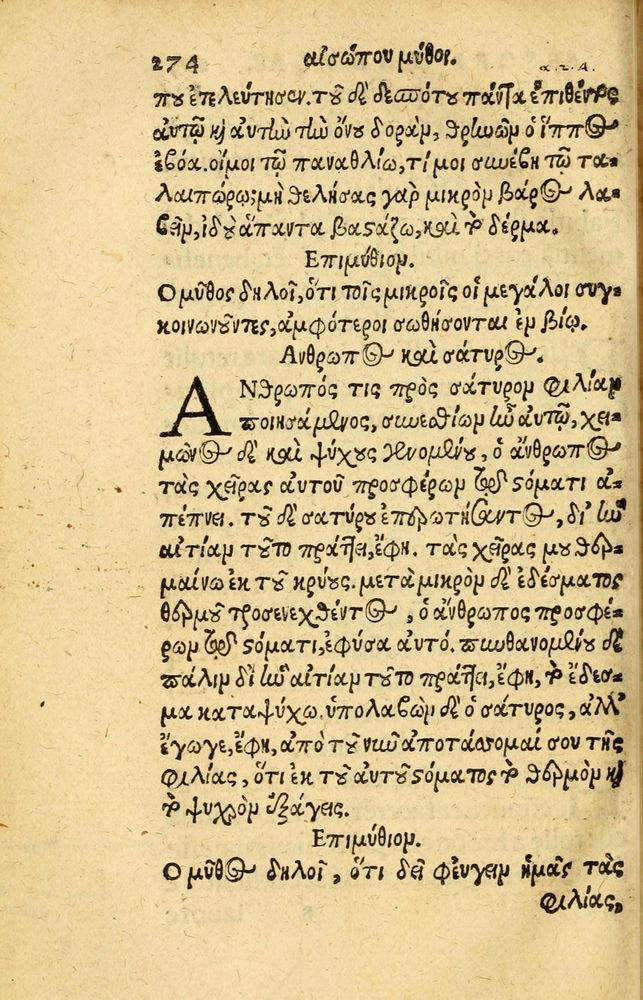 274 αἰσώπου μῦθοι. α.2.4.
που ἐπελεύτησεν. τοῦ δὲ δεσπότου πάντα ἐπιθέντος
αὐτῷ καὶ αὐτὴν τὴν ὄνου δοράν, θρηνῶν ὁ ἵππος
ἐβόα. οἴμοι τῷ παναθλίῳ, τί μοι συνέβη τῷ τα-
λαιπώρῳ; μὴ θελήσας γὰρ μικρὸν βάρος λα-
βεῖν, ἰδοὺ ἅπαντα βαστάζω, καὶ τὸ δέρμα.
Επιμύθιον.
Ο μῦθος δηλοῖ, ὅτι τοῖς μικροῖς οἱ μεγάλοι συγ-
κοινωνοῦντες, ἀμφότεροι σωθήσονται ἐν βίῳ.
Ανθρωπος καὶ σάτυρος.
ΑΝθρωπός τις πρὸς σάτυρον φιλίαν
ποιησάμενος, συνεσθίων ἦν αὐτῷ, χει-
μῶνος δὲ καὶ ψύχους γενομένου, ὁ ἄνθρωπος
τὰς χεῖρας αὐτοῦ προσφέρων τῷ στόματι ἀ-
πέπνει. τοῦ δὲ σατύρου ἐπερωτήσαντος, δι' ἣν
αἰτίαν τοῦτο πράττει, ἔφη. τὰς χεῖρας μου θερ-
μαίνω ἐκ τοῦ κρύους. μετὰ μικρὸν δὲ ἐδέσματος
θερμοῦ προσενεχθέντος, ὁ ἄνθρωπος προσφέ-
ρων τῷ στόματι, ἐφύσα αὐτό. πυνθανομένου δὲ
πάλιν δι' ἣν αἰτίαν τοῦτο πράττει, ἔφη, τὸ ἔδεσ-
μα καταψύχω. ὑπολαβὼν δὲ ὁ σάτυρος, ἀλλ'
ἔγωγε, ἔφη, ἀπὸ τοῦ νῦν ἀποτάσσομαί σου τῆς
φιλίας, ὅτι ἐκ τοῦ αὐτοῦ στόματος τὸ θερμὸν καὶ
τὸ ψυχρὸν ἐξάγεις.
Επιμύθιον.
Ο μῦθος δηλοῖ, ὅτι δεῖ φεύγειν ἡμᾶς τὰς
φιλίας,